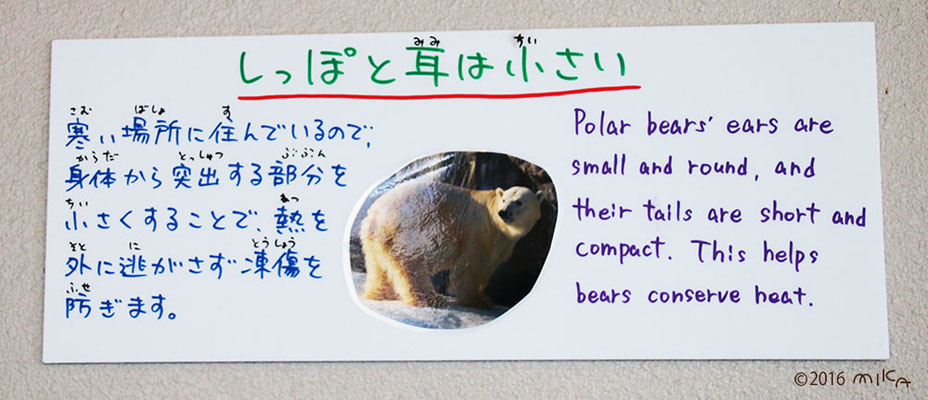 しっぽと耳は小さい
みみ ちい
さむ ばしょ す
寒い場所に住んでいるので、
からだ とっしゅつ ぶぶん
身体から突出する部分を
ちい ねつ
小さくすることで、熱を
そと に とうしょう
外に逃がさず凍傷を
ふせ
防ぎます。
Polar bears' ears are
small and round, and
their tails are short and
compact. This helps
bears conserve heat.
©2016 MIKA